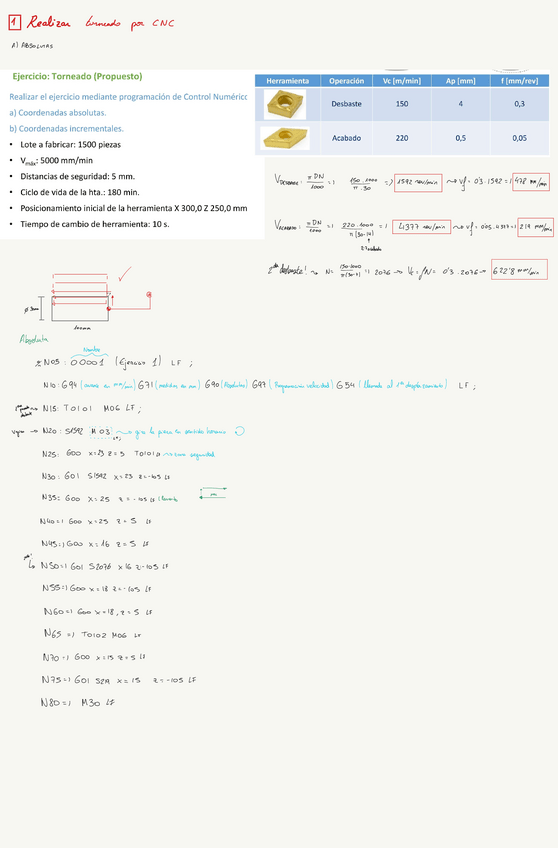 1 Realizar torneado por CNC
A) ABSOLUTAS
Ejercicio: Torneado (Propuesto)
Realizar el ejercicio mediante programación de Control Numéric
a) Coordenadas absolutas.
b) Coordenadas incrementales.
• Lote a fabricar: 1500 piezas
• Vmáx: 5000 mm/min
• Distancias de seguridad: 5 mm.
• Ciclo de vida de la hta.: 180 min.
• Posicionamiento inicial de la herramienta X 300,0 Z 250,0 mm
• Tiempo de cambio de herramienta: 10 s.
Herramienta Operación Vc [m/min] Ap [mm] f [mm/rev]
Desbaste 150 4 0,3
Acabado 220 0,5 0,05
VDESBASTE: πDN/1000 => 150·1000/π·30 => 1592 rev/min → vf = 0'3·1592 = 478 mm/min
VACABADO: πDN/1000 => 220·1000/π(30-14) => 4377 rev/min → vf = 0'05·4377 = 219 mm/min
2º desbaste! → N = 150·1000/π(30-7) = 2076 → Vf = f·N = 0'3·2076 → 622'8 mm/min
100mm
Absoluta
Nombre
% N05: O0001 (Ejercicio 1) LF ;
N10: G94 (avance en mm/min) G71 (medidas en mm) G90 (Absolutas) G97 (Programación velocidad) G54 (llamada al 1er desplazamiento) LF ;
N15: T0101 M06 LF ;
N20: S1592 M03 → gira la pieza en sentido horario
LF;
N25: G00 x=23 z=5 T0101 → zona seguridad
N30: G01 S1592 x=23 z=-105 LF
N35: G00 X=25 z=-105 LF
N40=) G00 x=25 z=5 LF
N45=) G00 x=16 z=5 LF
N50=) G01 S2076 x16 z-105 LF
N55=) G00 x=18 z=-105 LF
N60=) G00 x=18, z=5 LF
N65 =) T0102 M06 LF
N70 =) G00 x=15 z=5 LF
N75=) G01 S219 x=15 z=-105 LF
N80=) M30 LF